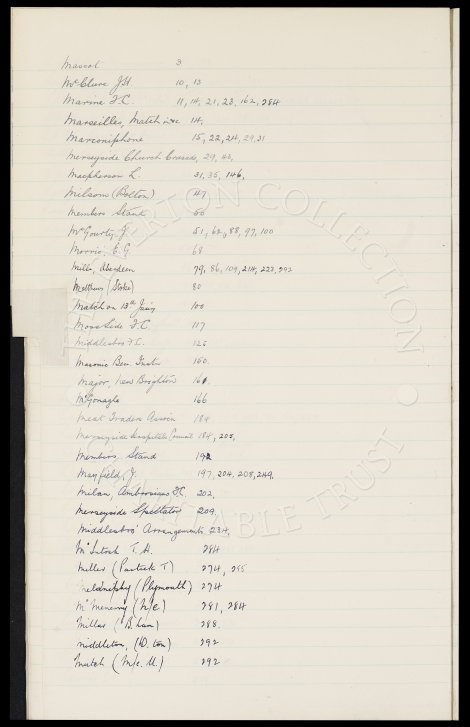 Mascot 3
McClure J.H. 10, 13
Marine F.C. 11, 14, 21, 23, 162, 284
Marseilles, Match 14,
Marconiphone 15, 22, 24, 29, 31
Merseyside Church 29, 42,
Macpherson L 31, 35, 146,
Milsom (Bolton) 47
Members Stand 50
McGourty J. 51, 62, 88, 97, 100
Morris, E.G. 68
Mills, Aberdeen 79, 86, 109, 214, 223, 292
Matthews (Stoke) 80
Match on 13th 100
Moss Side F.C. 117
Middlesbro F.C. 125
Masonic Ben. Instn 150.
Major, New Brighton 161.
McGonagle 166
Meat Traders Assocn 184
Merseyside Hospitals Council 184, 205,
Members Stand 192
Mayfield, J. 197, 204, 208, 249,
Milan, Ambrosiana F.C. 202,
Merseyside Spectator 209.
Middlesbro' Arrangements 234,
McIntosh T. H. 284
Miller (Partick T) 274, 255
(Plymouth) 274
McMenemy (N/c) 281, 284
Millar (B'ham) 288.
Middleton, (D. ton) 292
Mutch (M/c. U.) 292
EVERTON COLLECTION
CHARITABLE TRUST